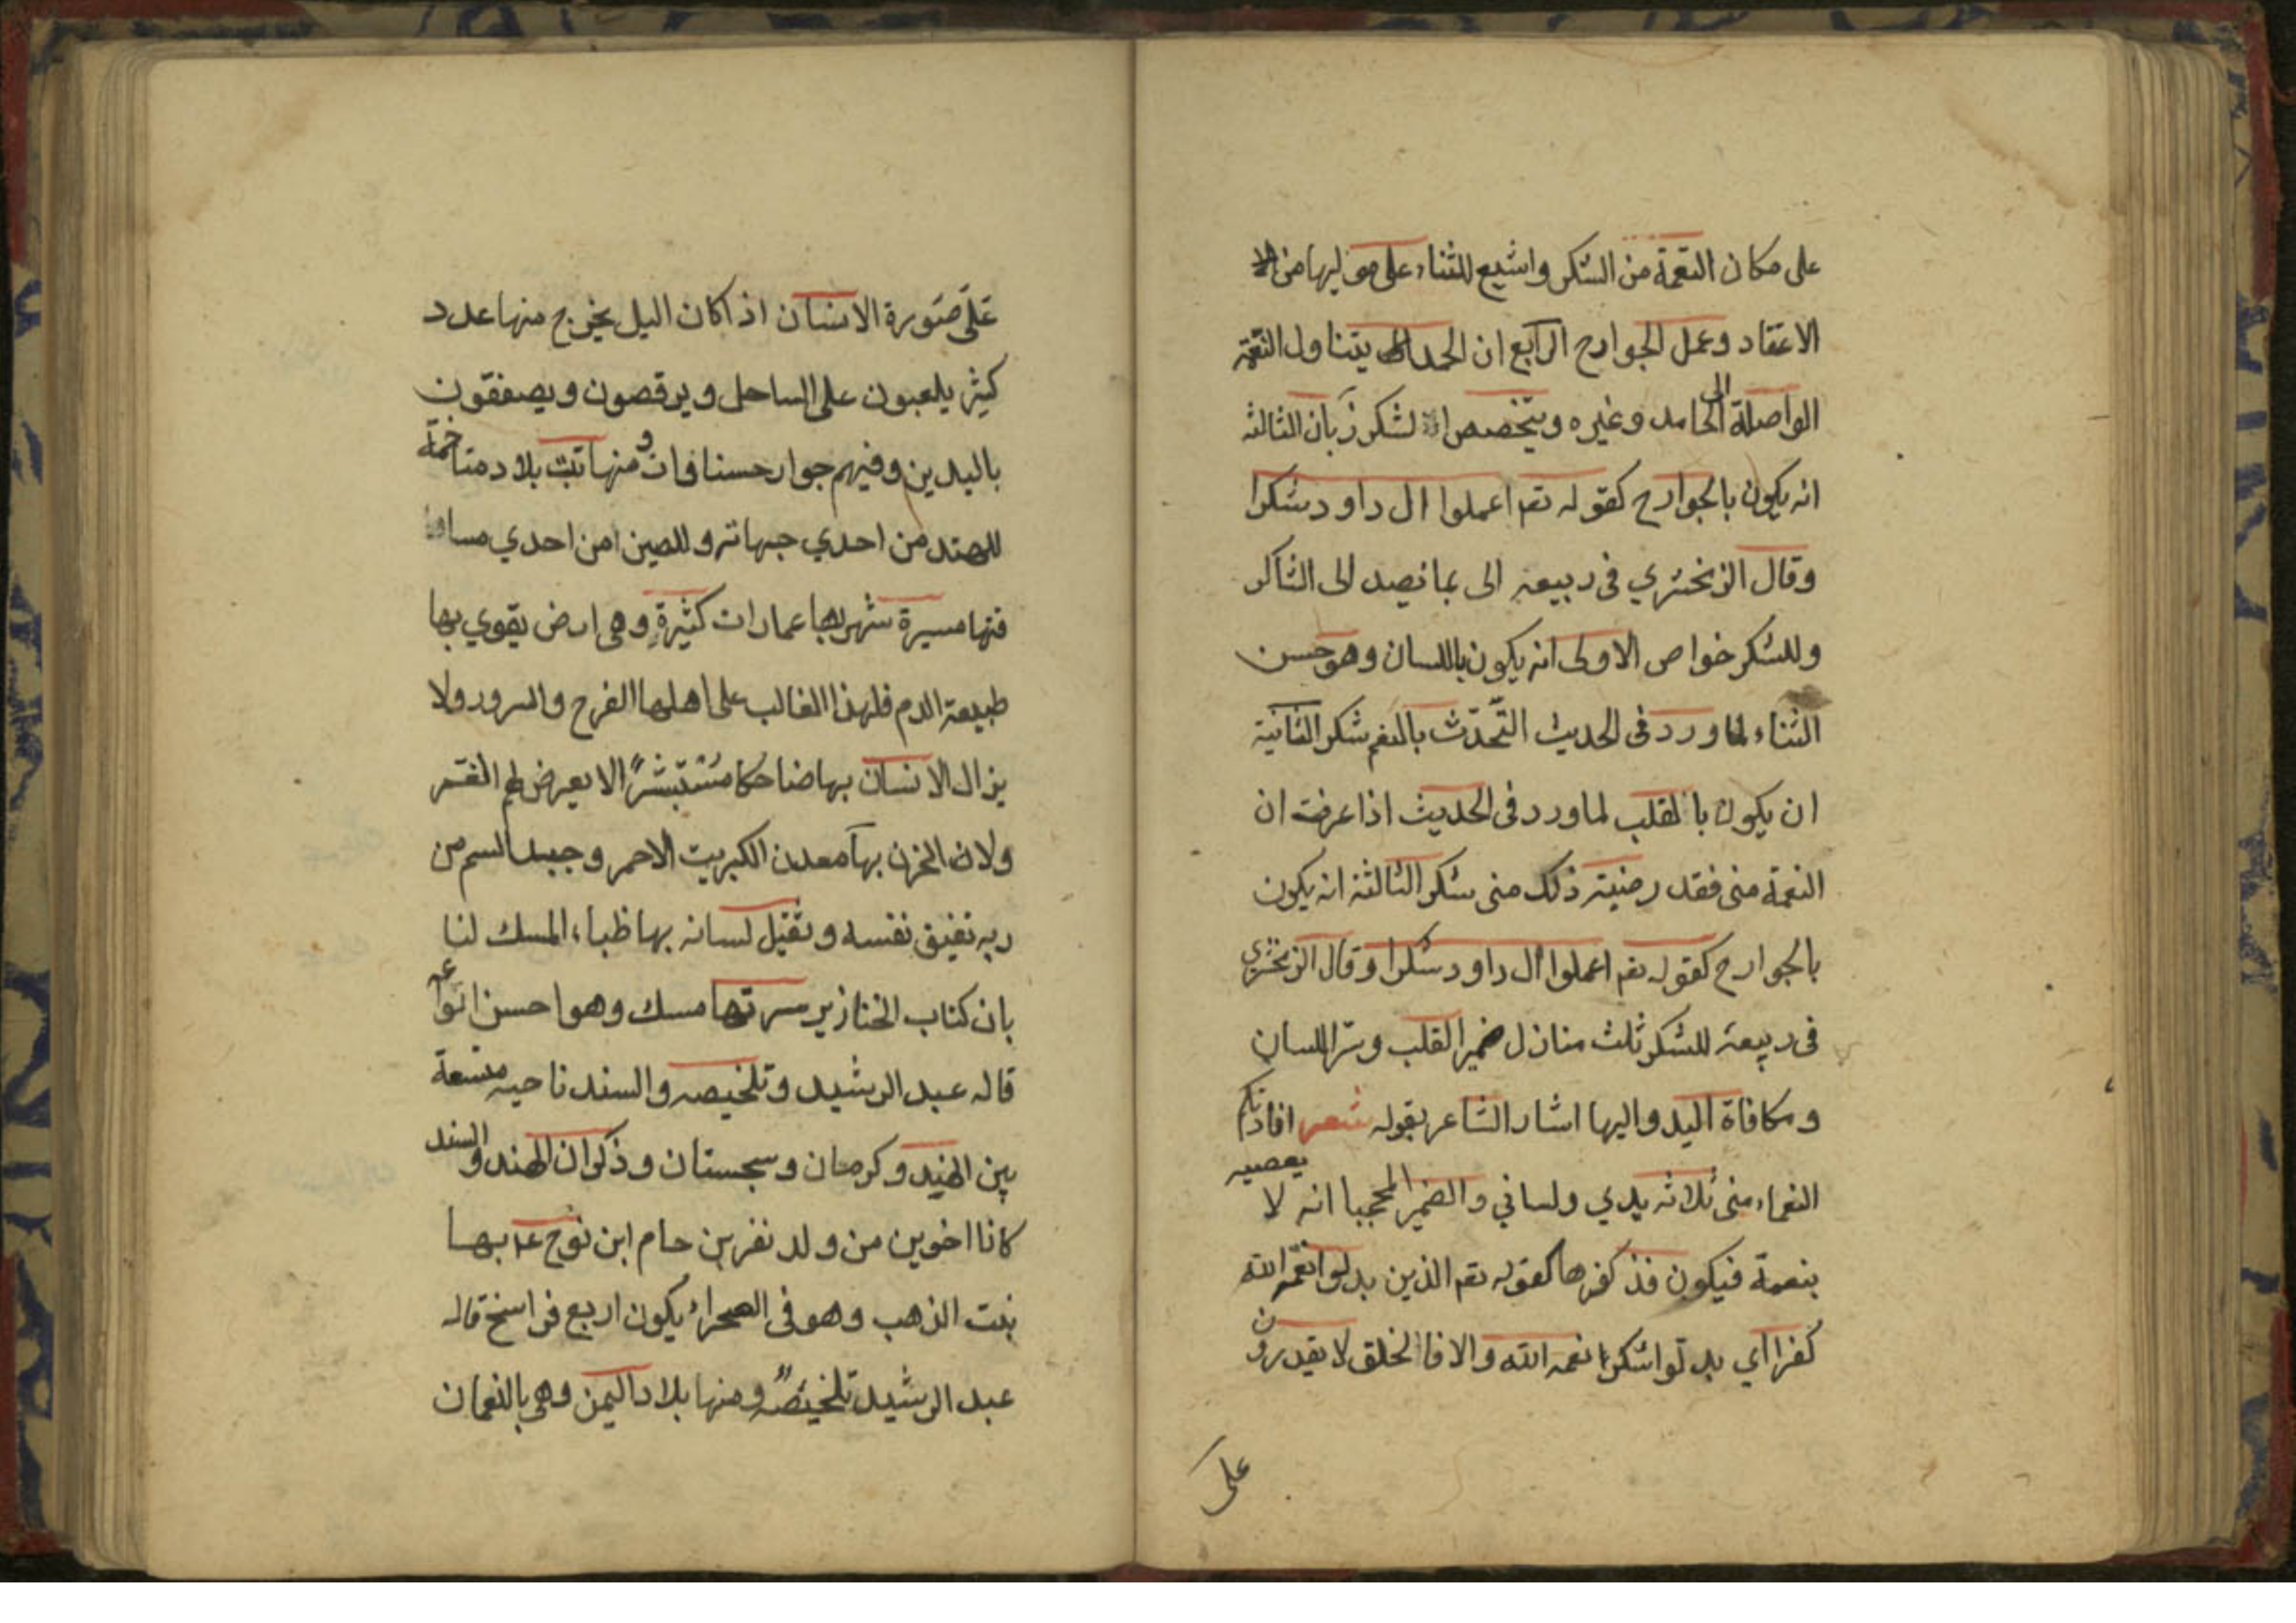 على مكان النعمة من الشكر واشيع للثناء على موليها من الا
الاعتقاد وعمل الجوارح الرابع ان الحمد يتناول النعمة
الواصلة الى الحامد وغيره ويتخصص الشكر زبان الثالثه
انه يكون بالجوارح كقوله تعم اعملوا ال داود شكرا
وقال الزمخشري فى ربيعه الى بما نصد الى الشاكر
وللشكر خواص الاولى انه يكون باللسان وهو حسن
الثناء لما ورد فى الحديث التّحدّث بالنعم شكر الثانية
ان يكون بالقلب لما ورد فى الحديث اذا عرفت ان
النعمة منى فقد رضيته ذلك منى شكر الثالثة انه يكون
بالجوارح كقوله تعم اعملوا ال داود شكرا وقال الزمخشري
فى ربيعة للشكر ثلث منازل ضمير القلب ونثر اللسان
ومكافاة اليد واليها اشار الشاعر بقوله شعر افادتكم
النعماء منى ثلاثه يدي ولساني والضمير المحجبا انه لا يعصيه
بنعمة فيكون فذ كفرها كقوله تعم الذين بدلوا نعمة الله
كفرا اي بدلوا شكرا نعمه الله والا فالخلق لا يقدرون
على
عَلَى صَوُرة الانسان اذا كان اليل يخرج منها عدد
كثير يلعبون على الساحل ويرقصون ويصفقون
باليدين وفيهم جوار حسنا فات ومنها تبت بلاد متاخمة
للهند من احدي جهاته وللصين من احدي مسا
فتها مسيرة شهر بها عمارات كثيرةٍ وهى ارض يقوي بها
طبيعة الدم فلهذا الغالب على اهلها الفرح والسرور ولا
يزال الانسان بها ضاحكا مستبشرًا لا يعرض لهم الغم
ولا الحزن بها معدن الكبريت الاحمر وجبل السم من
ربه تفيق نفسه وثقيل لسانه بها ظباء المسك لنا
بان كناب الخنازير سرتها مسك وهو احسن انواعه
قاله عبد الرشيد وتلخيصه والسند ناحيه متسعة
بين الهند وكرمان وسجستان وذكر ان الهند والسند
كانا اخوين من ولد نفر بن حام ابن نوح عم بها
نبت الذهب وهو فى الصحراء يكون اربع فراسخ قاله
عبد الرشيد تلخيصه ومنها بلاد اليمن وهى بالنعمان